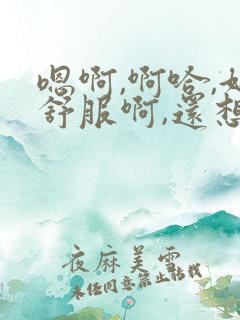 嗯啊,啊哈,
舒服啊,還想
夜麻美雲
未经同意禁止转载